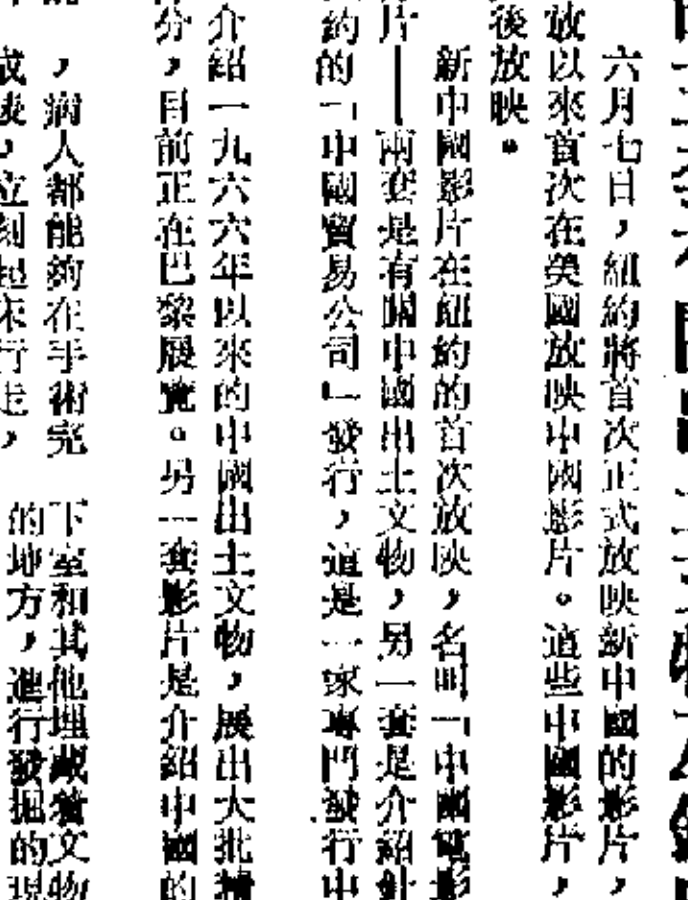 六月七日，紐約將首次正式放映新中國的影片，
放以來首次在美國放映中國影片。這些中國影片，
後放映。
新中國影片在紐約的首次放映，名叫「中國電影
片——兩套是有關中國出土文物，另一套是介紹針
約的「中國貿易公司」發行，這是一家專門發行中
介紹一九六六年以來的中國出土文物，展出大批精
分，目前正在巴黎展覽。另一套影片是介紹中國的
，病人都能夠在手術完
後，立刻起來行走，
下室和其他埋藏着文物
的地方，進行發掘的現